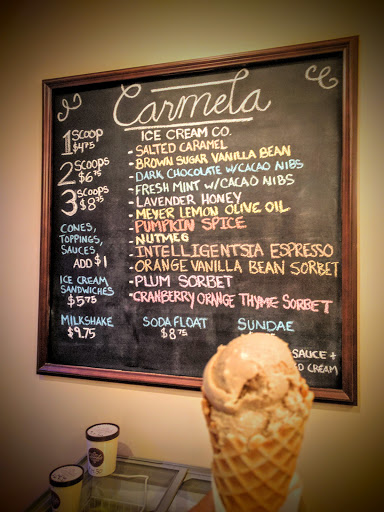 Carmela
ICE CREAM CO.
1 SCOOP
$4.75
2 SCOOPS
$6.75
3 SCOOPS
$8.75
CONES,
TOPPINGS,
SAUCES
ADD $1
ICE CREAM
SANDWICHES
$5.75
- SALTED CARAMEL
- BROWN SUGAR VANILLA BEAN
- DARK CHOCOLATE W/CACAO NIBS
- FRESH MINT W/CACAO NIBS
- LAVENDER HONEY
- MEYER LEMON OLIVE OIL
- PUMPKIN SPICE
- NUTMEG
- INTELLIGENTSIA ESPRESSO
- ORANGE VANILLA BEAN SORBET
- PLUM SORBET
- CRANBERRY ORANGE THYME SORBET
MILKSHAKE
$9.75
SODA FLOAT
$8.75
SUNDAE
SAUCE +
CREAM